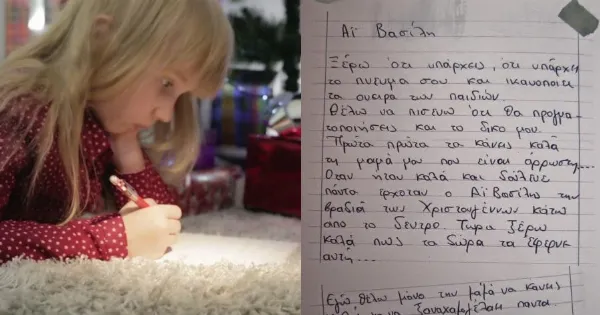 Αϊ Βασίλη
Ξέρω ότι υπάρχεις, ότι υπάρχει
το πνευμα σου και ικανοποιεί
τα ονειρα των παιδιών.
Θέλω να πιστευω ότι θα πραγμα-
τοποιήσεις και το δικο μου.
Πρώτα πρώτα να κάνεις καλά
τη μαμά μου που είναι άρρωστη...
Οταν ηταν καλά και δούλευε
πάντα ερχοταν ο Αϊ Βασίλης την
βραδιά των Χριστουγέννων κάτω
απο το δεντρο. Τωρα ξέρω
καλά πως τα δώρα τα έφερνε
αυτη...
Εγώ θέλω μόνο την μαμά να κάνεις
παντα